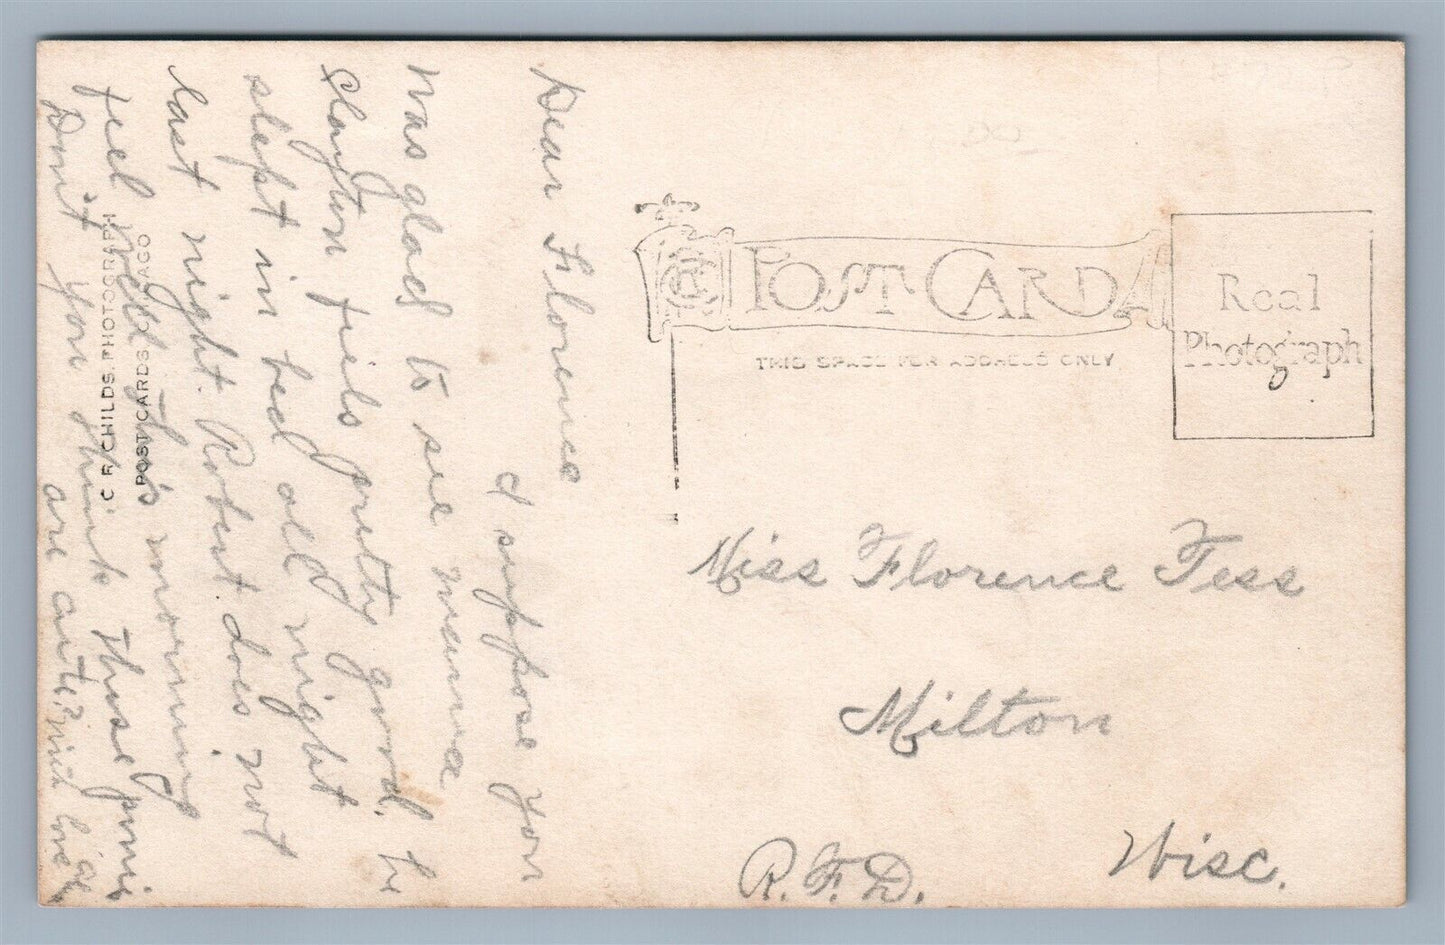 Dear Florence
I suppose you
was glad to see mama
Slayton feels pretty good. he
slept in bed all night
last night. Robert does not
feel well this morning
Don't you think those ponies
are cute? with love
C. R. CHILDS. PHOTOGRAPH
POST CARDS CHICAGO
POST CARD
THIS SPACE FOR ADDRESS ONLY
Real
Photograph
Miss Florence Tess
Milton
Wisc.
R.F.D.